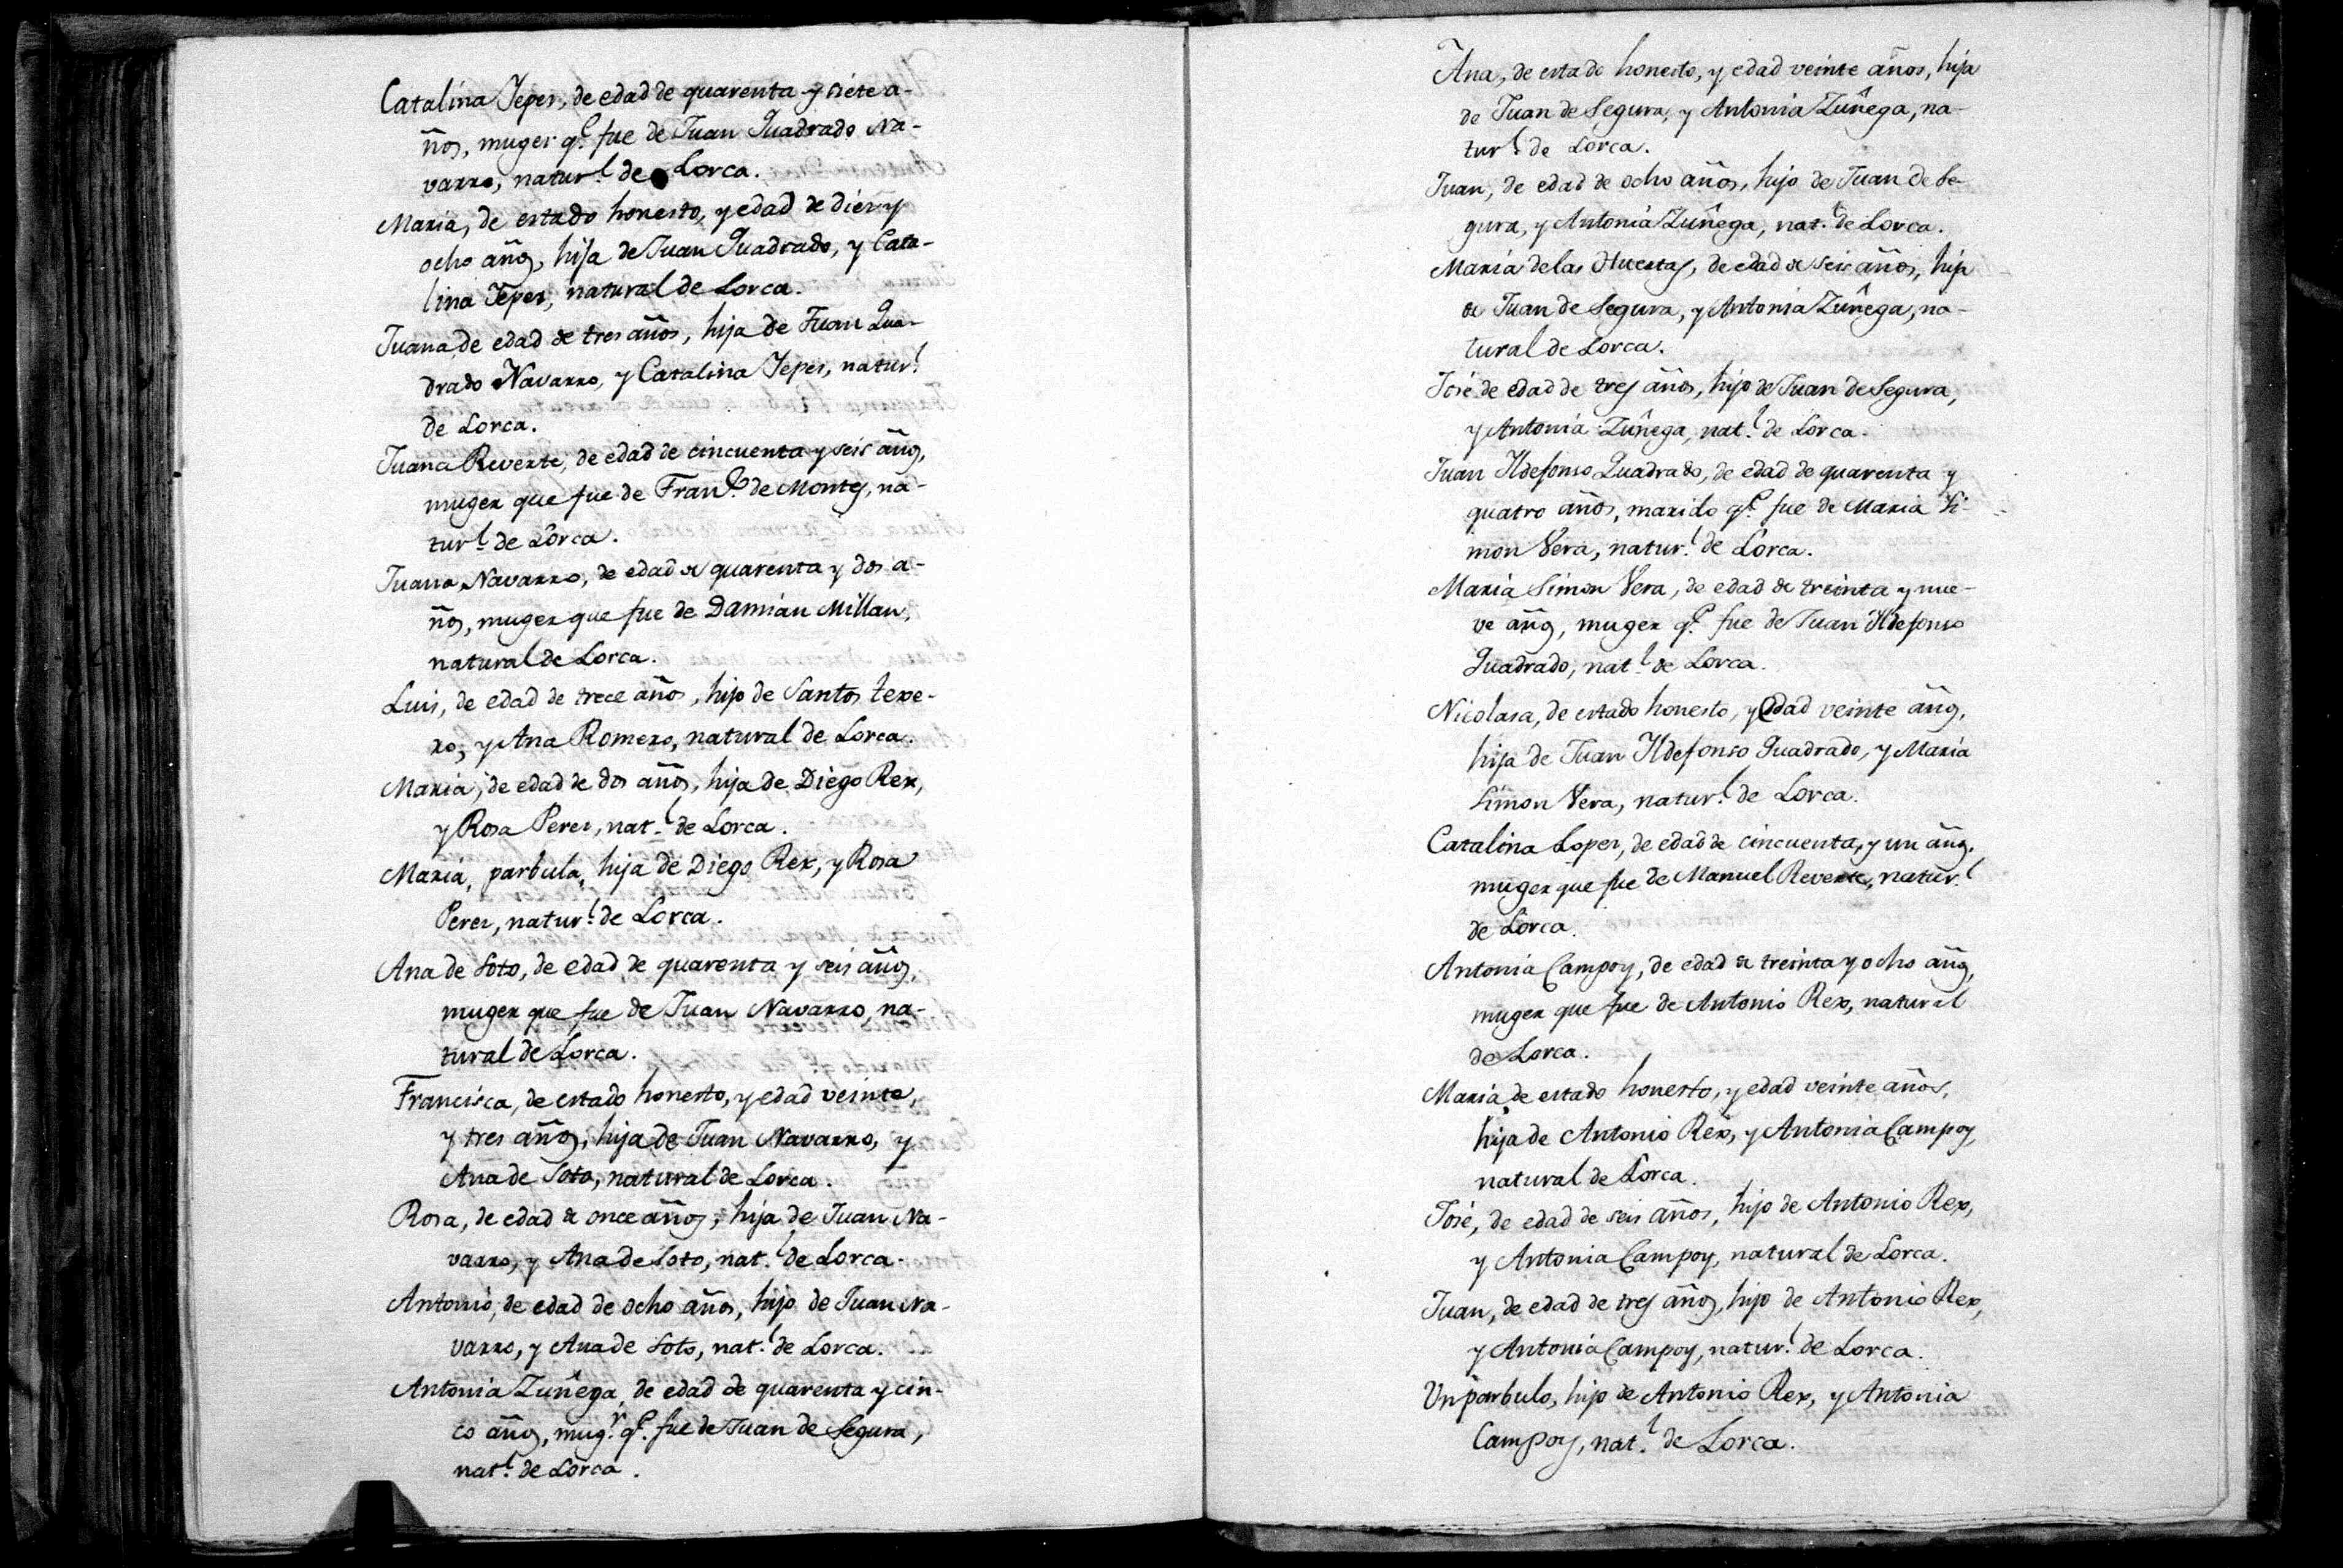 Catalina Yepes, de edad de quarenta y siete a-
ños, muger q.e fue de Juan Quadrado Na-
varro, natur.l de Lorca.
Maria, de estado honesto, y edad de dies y
ocho años, hija de Juan Quadrado, y Cata-
lina Yepes, natural de Lorca.
Juana, de edad de tres años, hija de Juan Qua-
drado Navarro, y Catalina Yepes, natur.l
de Lorca.
Juana Reverte, de edad de cincuenta y seis años,
muger que fue de Fran.co de Montes, na-
tur.l de Lorca.
Juana Navarro, de edad de quarenta y dos a-
ños, muger que fue de Damian Millan,
natural de Lorca.
Luis, de edad de trece años, hijo de Santos texe-
ro, y Ana Romero, natural de Lorca.
Maria, de edad de dos años, hija de Diego Rex,
y Rosa Peres, nat.l de Lorca.
Maria, parbula, hija de Diego Rex, y Rosa
Peres, natur.l de Lorca.
Ana de Soto, de edad de quarenta y seis años,
muger que fue de Juan Navarro, na-
tural de Lorca.
Francisca, de estado honesto, y edad veinte,
y tres años, hija de Juan Navarro, y
Ana de Soto, natural de Lorca.
Rosa, de edad de once años, hija de Juan Na-
varro, y Ana de Soto, nat.l de Lorca.
Antonio, de edad de ocho años, hijo de Juan Na-
varro, y Ana de Soto, nat.l de Lorca.
Antonia Zuñega, de edad de quarenta y cin-
co años, mug.r q.e fue de Juan de Segura,
nat.l de Lorca.
Ana, de estado honesto, y edad veinte años, hija
de Juan de Segura, y Antonia Zuñega, na-
tur.l de Lorca.
Juan, de edad de ocho años, hijo de Juan de Se-
gura, y Antonia Zuñega, nat.l de Lorca.
Maria de las Huertas, de edad de seis años, hija
de Juan de Segura, y Antonia Zuñega, na-
tural de Lorca.
José de edad de tres años, hijo de Juan de Segura,
y Antonia Zuñega, nat.l de Lorca.
Juan Yldefonso Quadrado, de edad de quarenta y
quatro años, marido q.e fue de Maria Si-
mon Vera, natur.l de Lorca.
Maria Simon Vera, de edad de treinta y nue-
ve años, muger q.e fue de Juan Yldefonso
Quadrado, nat.l de Lorca.
Nicolasa, de estado honesto, y edad veinte años,
hija de Juan Yldefonso Quadrado, y Maria
Simon Vera, natur.l de Lorca.
Catalina Lopes, de edad de cincuenta, y un años,
muger que fue de Manuel Reverte, natur.l
de Lorca.
Antonia Campoy, de edad de treinta y ocho años,
muger que fue de Antonio Rex, natural
de Lorca.
Maria, de estado honesto, y edad veinte años,
hija de Antonio Rex, y Antonia Campoy,
natural de Lorca.
José, de edad de seis años, hijo de Antonio Rex,
y Antonia Campoy, natural de Lorca.
Juan, de edad de tres años, hijo de Antonio Rex,
y Antonia Campoy, natur.l de Lorca.
Un parbulo, hijo de Antonio Rex, y Antonia
Campoy, nat.l de Lorca.